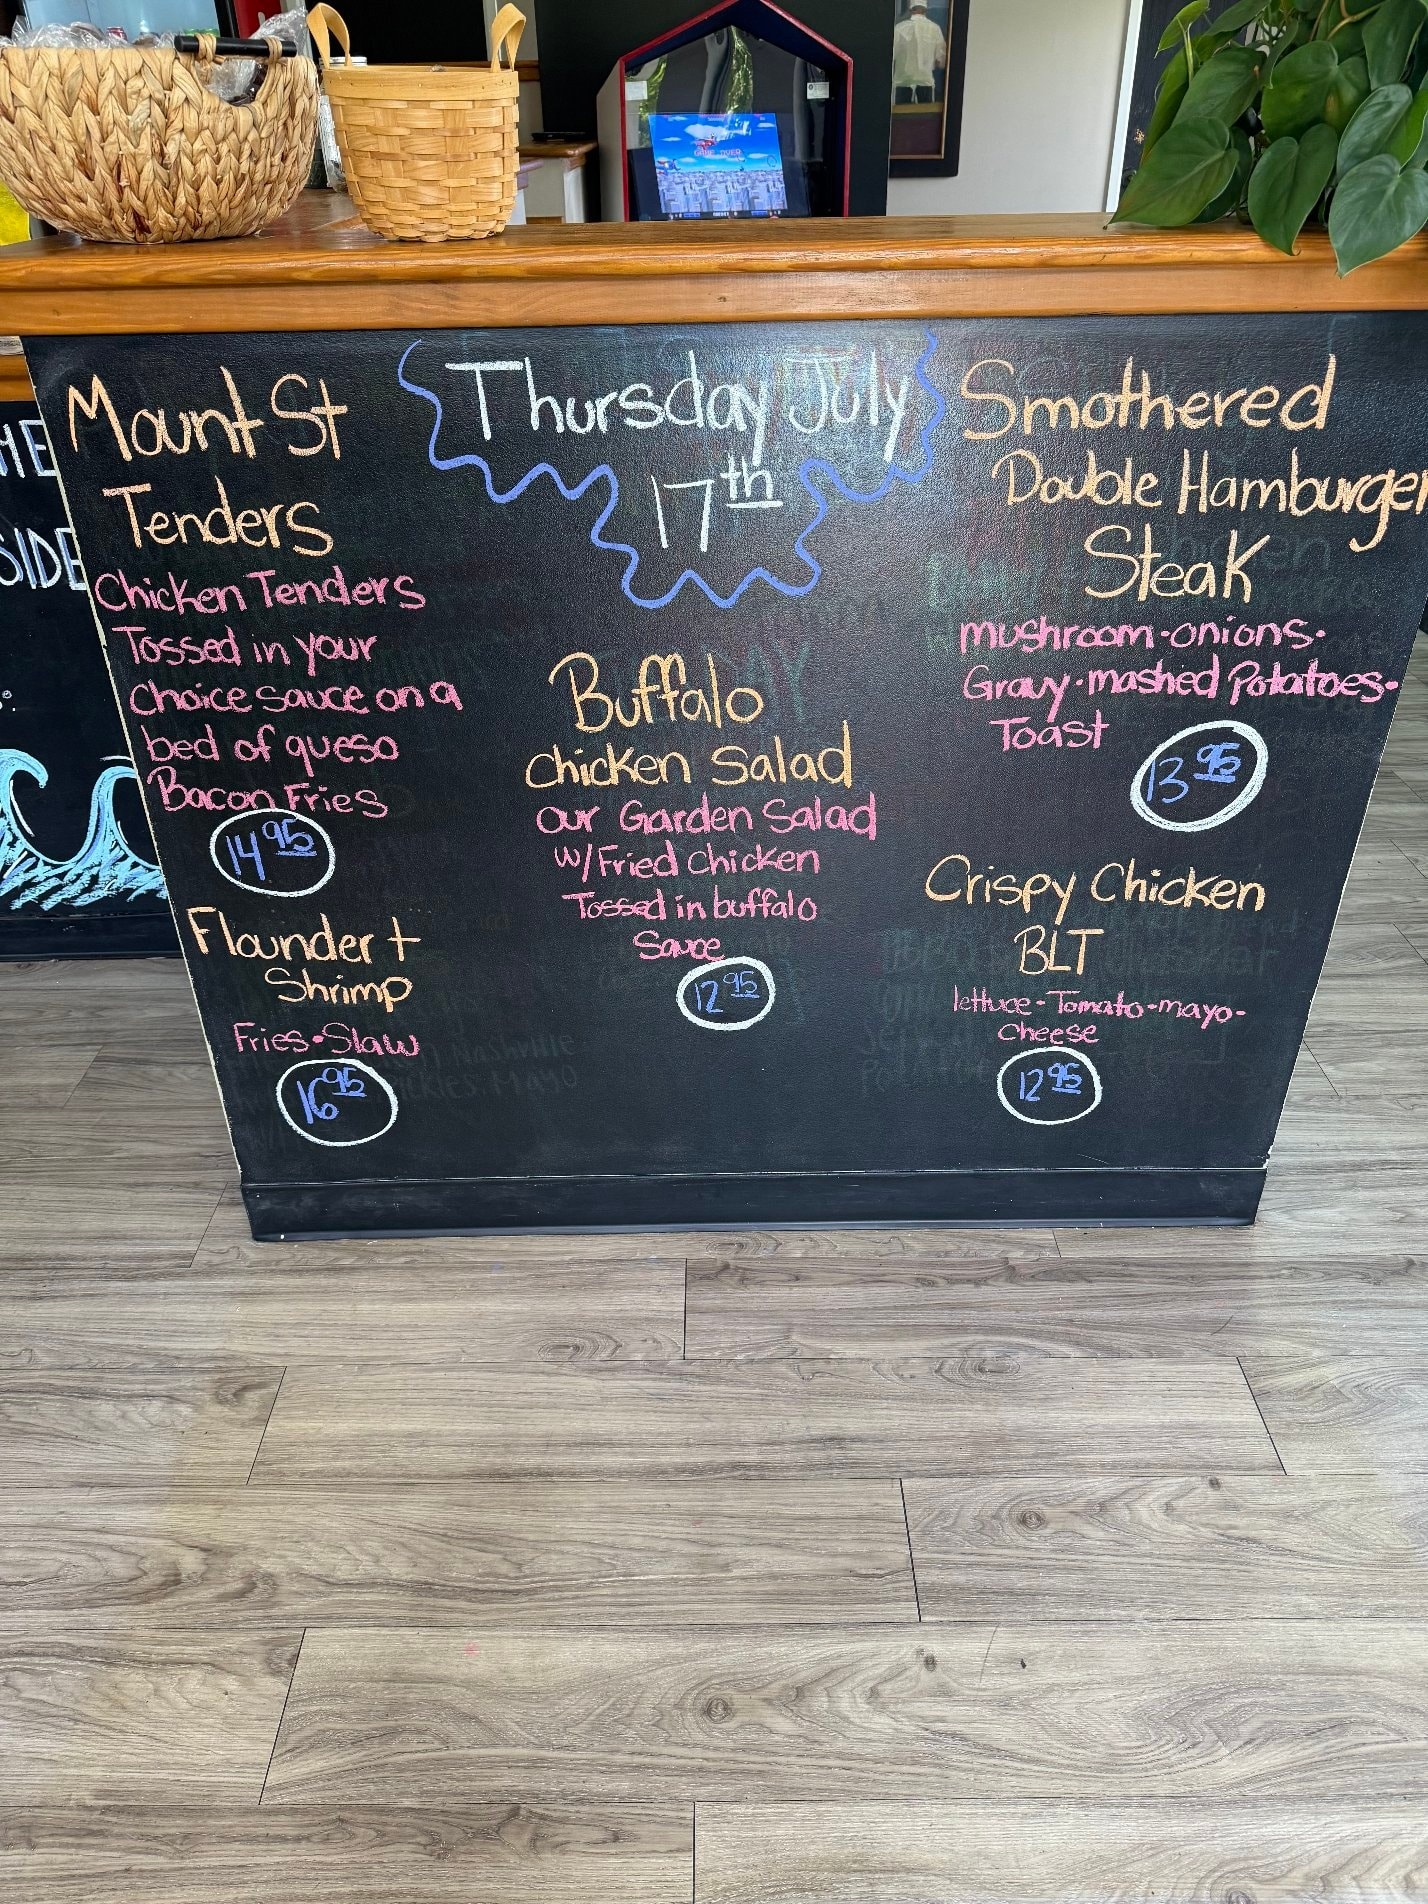 GAME OVER
HE
SIDE
Thursday July
17th
Mount St
Tenders
Chicken Tenders
Tossed in your
choice sauce on a
bed of queso
Bacon Fries
14 95
Flounder +
Shrimp
Fries • Slaw
16 95
Buffalo
chicken Salad
our Garden Salad
w/Fried chicken
Tossed in buffalo
Sauce
12 95
Smothered
Double Hamburger
Steak
mushroom • onions •
Gravy • mashed Potatoes •
Toast
13 95
Crispy Chicken
BLT
lettuce - Tomato - mayo -
cheese
12 95
Nashville
Mayo